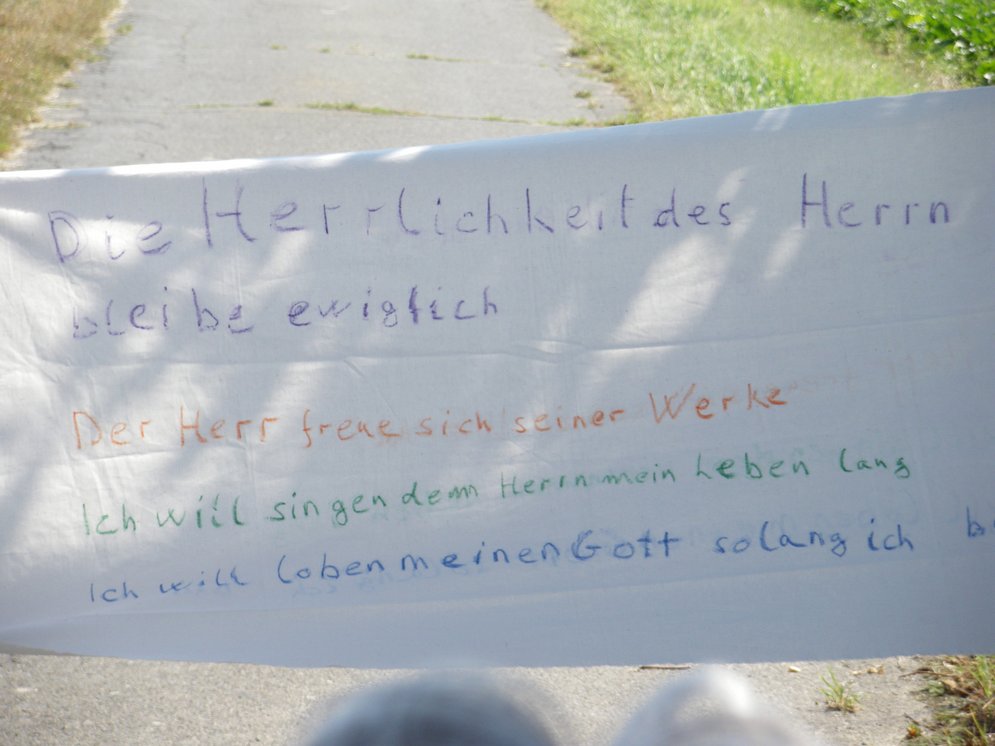 Die Herrlichkeit des Herrn
bleibe ewiglich
Der Herr freue sich seiner Werke
Ich will singen dem Herrn mein Leben lang
Ich will loben meinen Gott solang ich